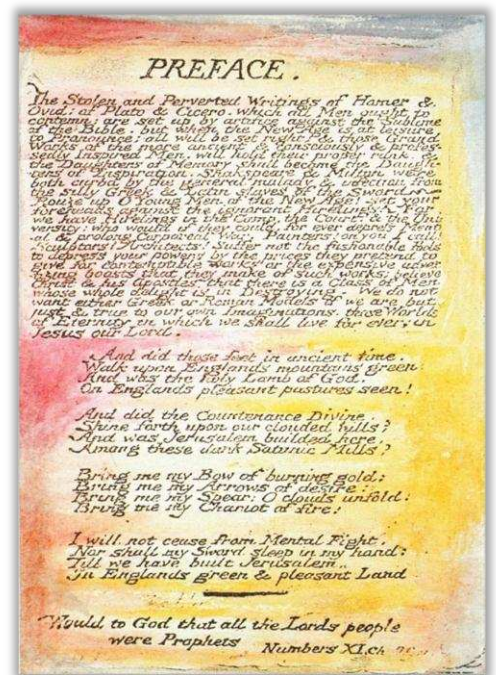 PREFACE.
The Stolen and Perverted Writings of Homer &
Ovid: of Plato & Cicero. which all Men ought to
contemn: are set up by artifice against the Sublime
of the Bible. but when the New Age is at leisure
to Pronounce; all will be set right: & those Grand
Works of the more ancient & consciously & profes-
sedly Inspired Men, will hold their proper rank, &
the Daughters of Memory shall become the Daugh-
ters of Inspiration. Shakspeare & Milton were
both curbd by the general malady & infection from
the silly Greek & Latin slaves of the Sword.
Rouze up O Young Men of the New Age! set your
foreheads against the ignorant Hirelings! For
we have Hirelings in the Camp, the Court & the Uni-
versity: who would if they could, for ever depress Ment-
al & prolong Corporeal War. Painters! on you I call!
Sculptors! Architects! Suffer not the fashonable Fools
to depress your powers by the prices they pretend to
give for contemptible works or the expensive adver-
tizing boasts that they make of such works; believe
Christ & his Apostles that there is a Class of Men
whose whole delight is in Destroying. We do not
want either Greek or Roman Models if we are but
just & true to our own Imaginations, those Worlds
of Eternity in which we shall live for ever; in
Jesus our Lord.
And did those feet in ancient time.
Walk upon Englands mountains green:
And was the holy Lamb of God.
On Englands pleasant pastures seen!
And did the Countenance Divine.
Shine forth upon our clouded hills?
And was Jerusalem builded here,
Among these dark Satanic Mills?
Bring me my Bow of burning gold:
Bring me my Arrows of desire:
Bring me my Spear: O clouds unfold:
Bring me my Chariot of fire!
I will not cease from Mental Fight,
Nor shall my Sword sleep in my hand:
Till we have built Jerusalem,
In Englands green & pleasant Land
Would to God that all the Lords people
were Prophets Numbers XI.ch